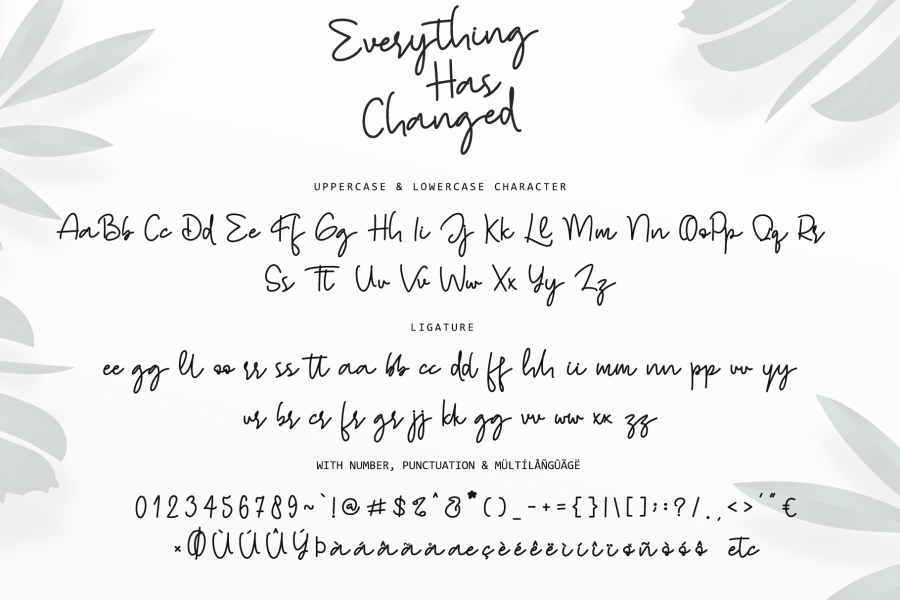 Everything
Has
Changed
UPPERCASE & LOWERCASE CHARACTER
AaBb Cc Dd Ee Ff Gg Hh Ii Jj Kk Ll Mm Nn OoPp Qq Rr
Ss Tt Uu Vv Ww Xx Yy Zz
LIGATURE
ee gg ll oo rr ss tt aa bb cc dd ff hh ii mm nn pp uu yy
ur br cr fr gr jj kk gg vv ww xx zz
WITH NUMBER, PUNCTUATION & MÜLTÍLÅÑGÛÃGË
0123456789~`!@#$%^&*()_-+={}|\[];:?/.,<>'"€
×ØÙÚÛÝÞàáâãäåæçèéêëìíîïðñòóô etc